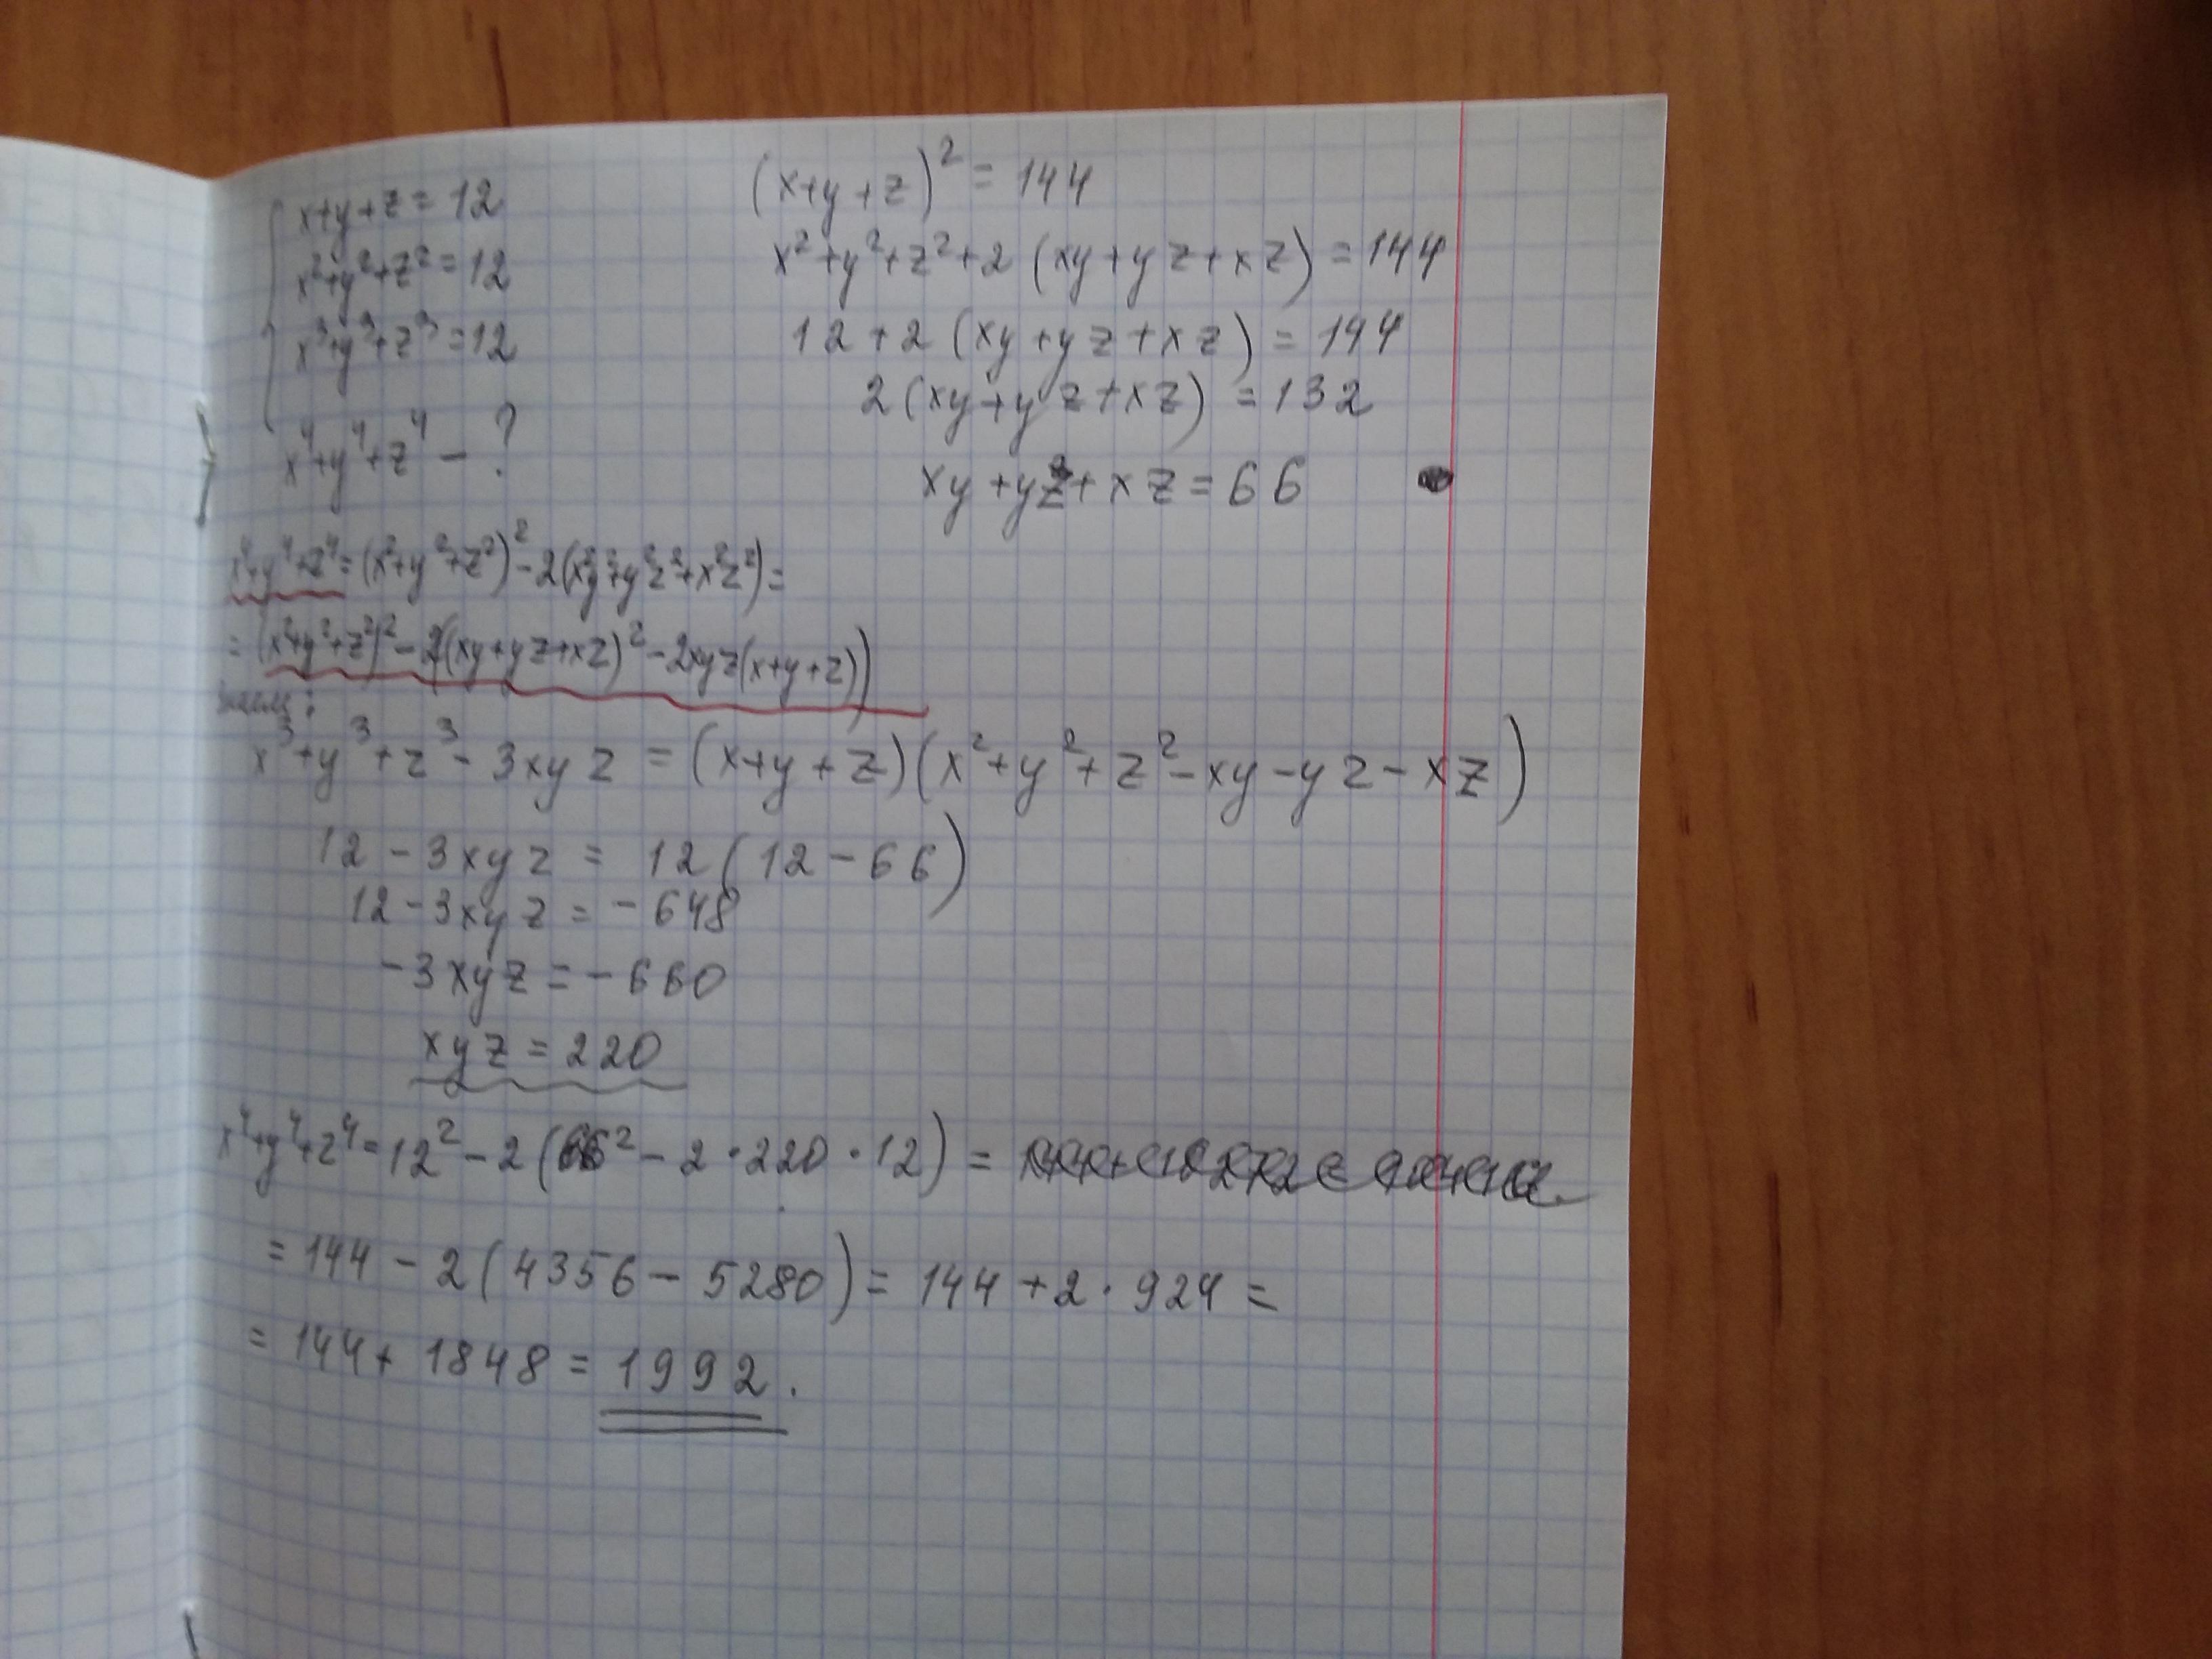 x+y+z=12
x²+y²+z²=12
x³+y³+z³=12
x⁴+y⁴+z⁴ - ?
(x+y+z)² = 144
x²+y²+z²+2(xy+yz+xz) = 144
12+2(xy+yz+xz) = 144
2(xy+yz+xz) = 132
xy+yz+xz = 66
x⁴+y⁴+z⁴=(x²+y²+z²)²-2(x²y²+y²z²+x²z²)=
=(x²+y²+z²)²-2((xy+yz+xz)²-2xyz(x+y+z))
x³+y³+z³-3xyz = (x+y+z)(x²+y²+z²-xy-yz-xz)
12-3xyz = 12(12-66)
12-3xyz = -648
-3xyz = -660
xyz = 220
x⁴+y⁴+z⁴=12²-2(66²-2·220·12) =
=144-2(4356-5280) = 144+2·924 =
=144+1848 = 1992.